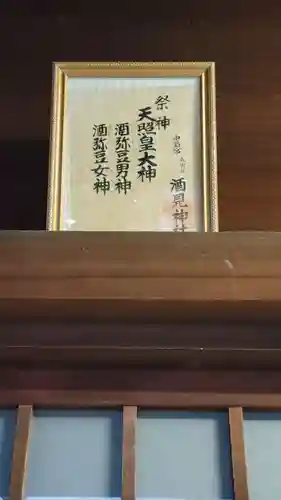 祭神
天照皇大神
酒弥豆男神
酒弥豆女神
酒見神社